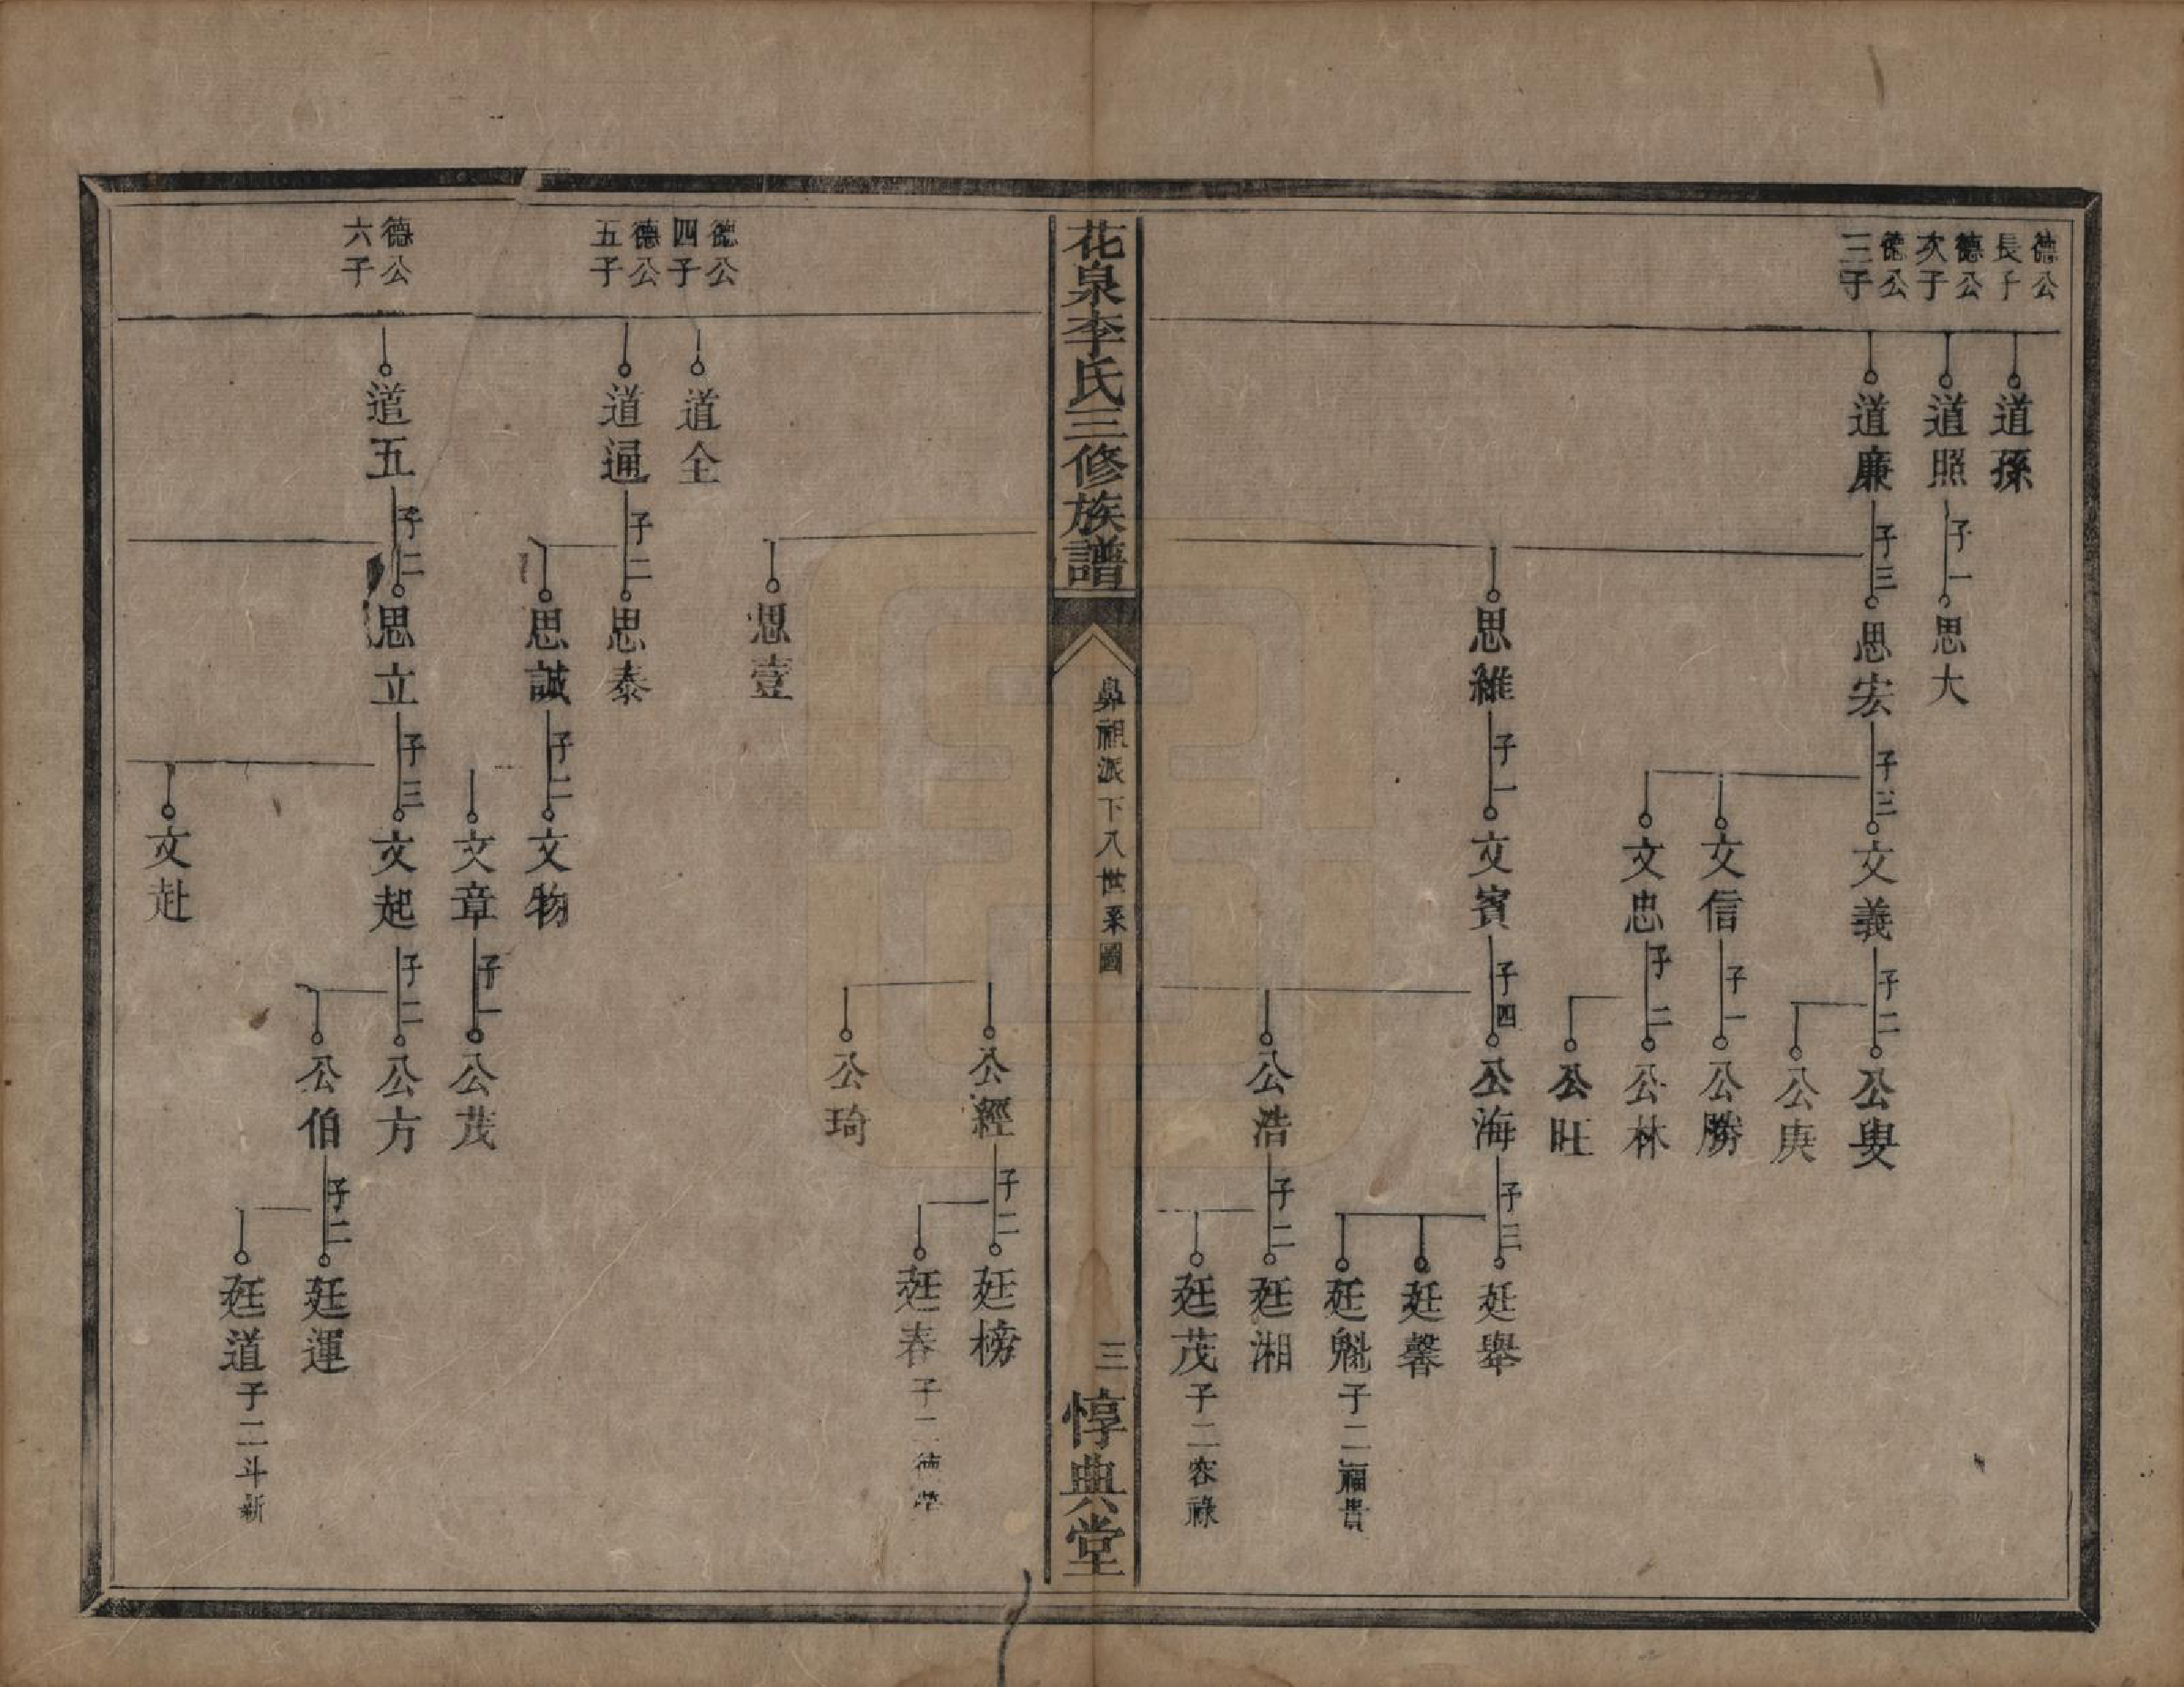 德公
長子
道孫
德公
次子
道照
子一
思大
德公
三子
道廉
子三
思宏
子三
文義
子二
公叟
公庚
文信
子一
公勝
文忠
子二
公林
公旺
思維
子一
文賓
子四
公海
子三
廷舉
廷馨
廷魁
子二福貴
公浩
子二
廷湘
廷茂
子二容祿
花泉李氏三修族譜
鼻祖派下八世系圖
三
惇典堂
公經
子二
廷榜
廷春
子二德
公琦
思壹
德公
四子
道全
德公
五子
道通
子二
思泰
思誠
子二
文物
文章
子一
公茂
德公
六子
道五
子二
思立
子三
文起
子二
公方
公伯
子二
廷運
廷道
子二斗新
文赴